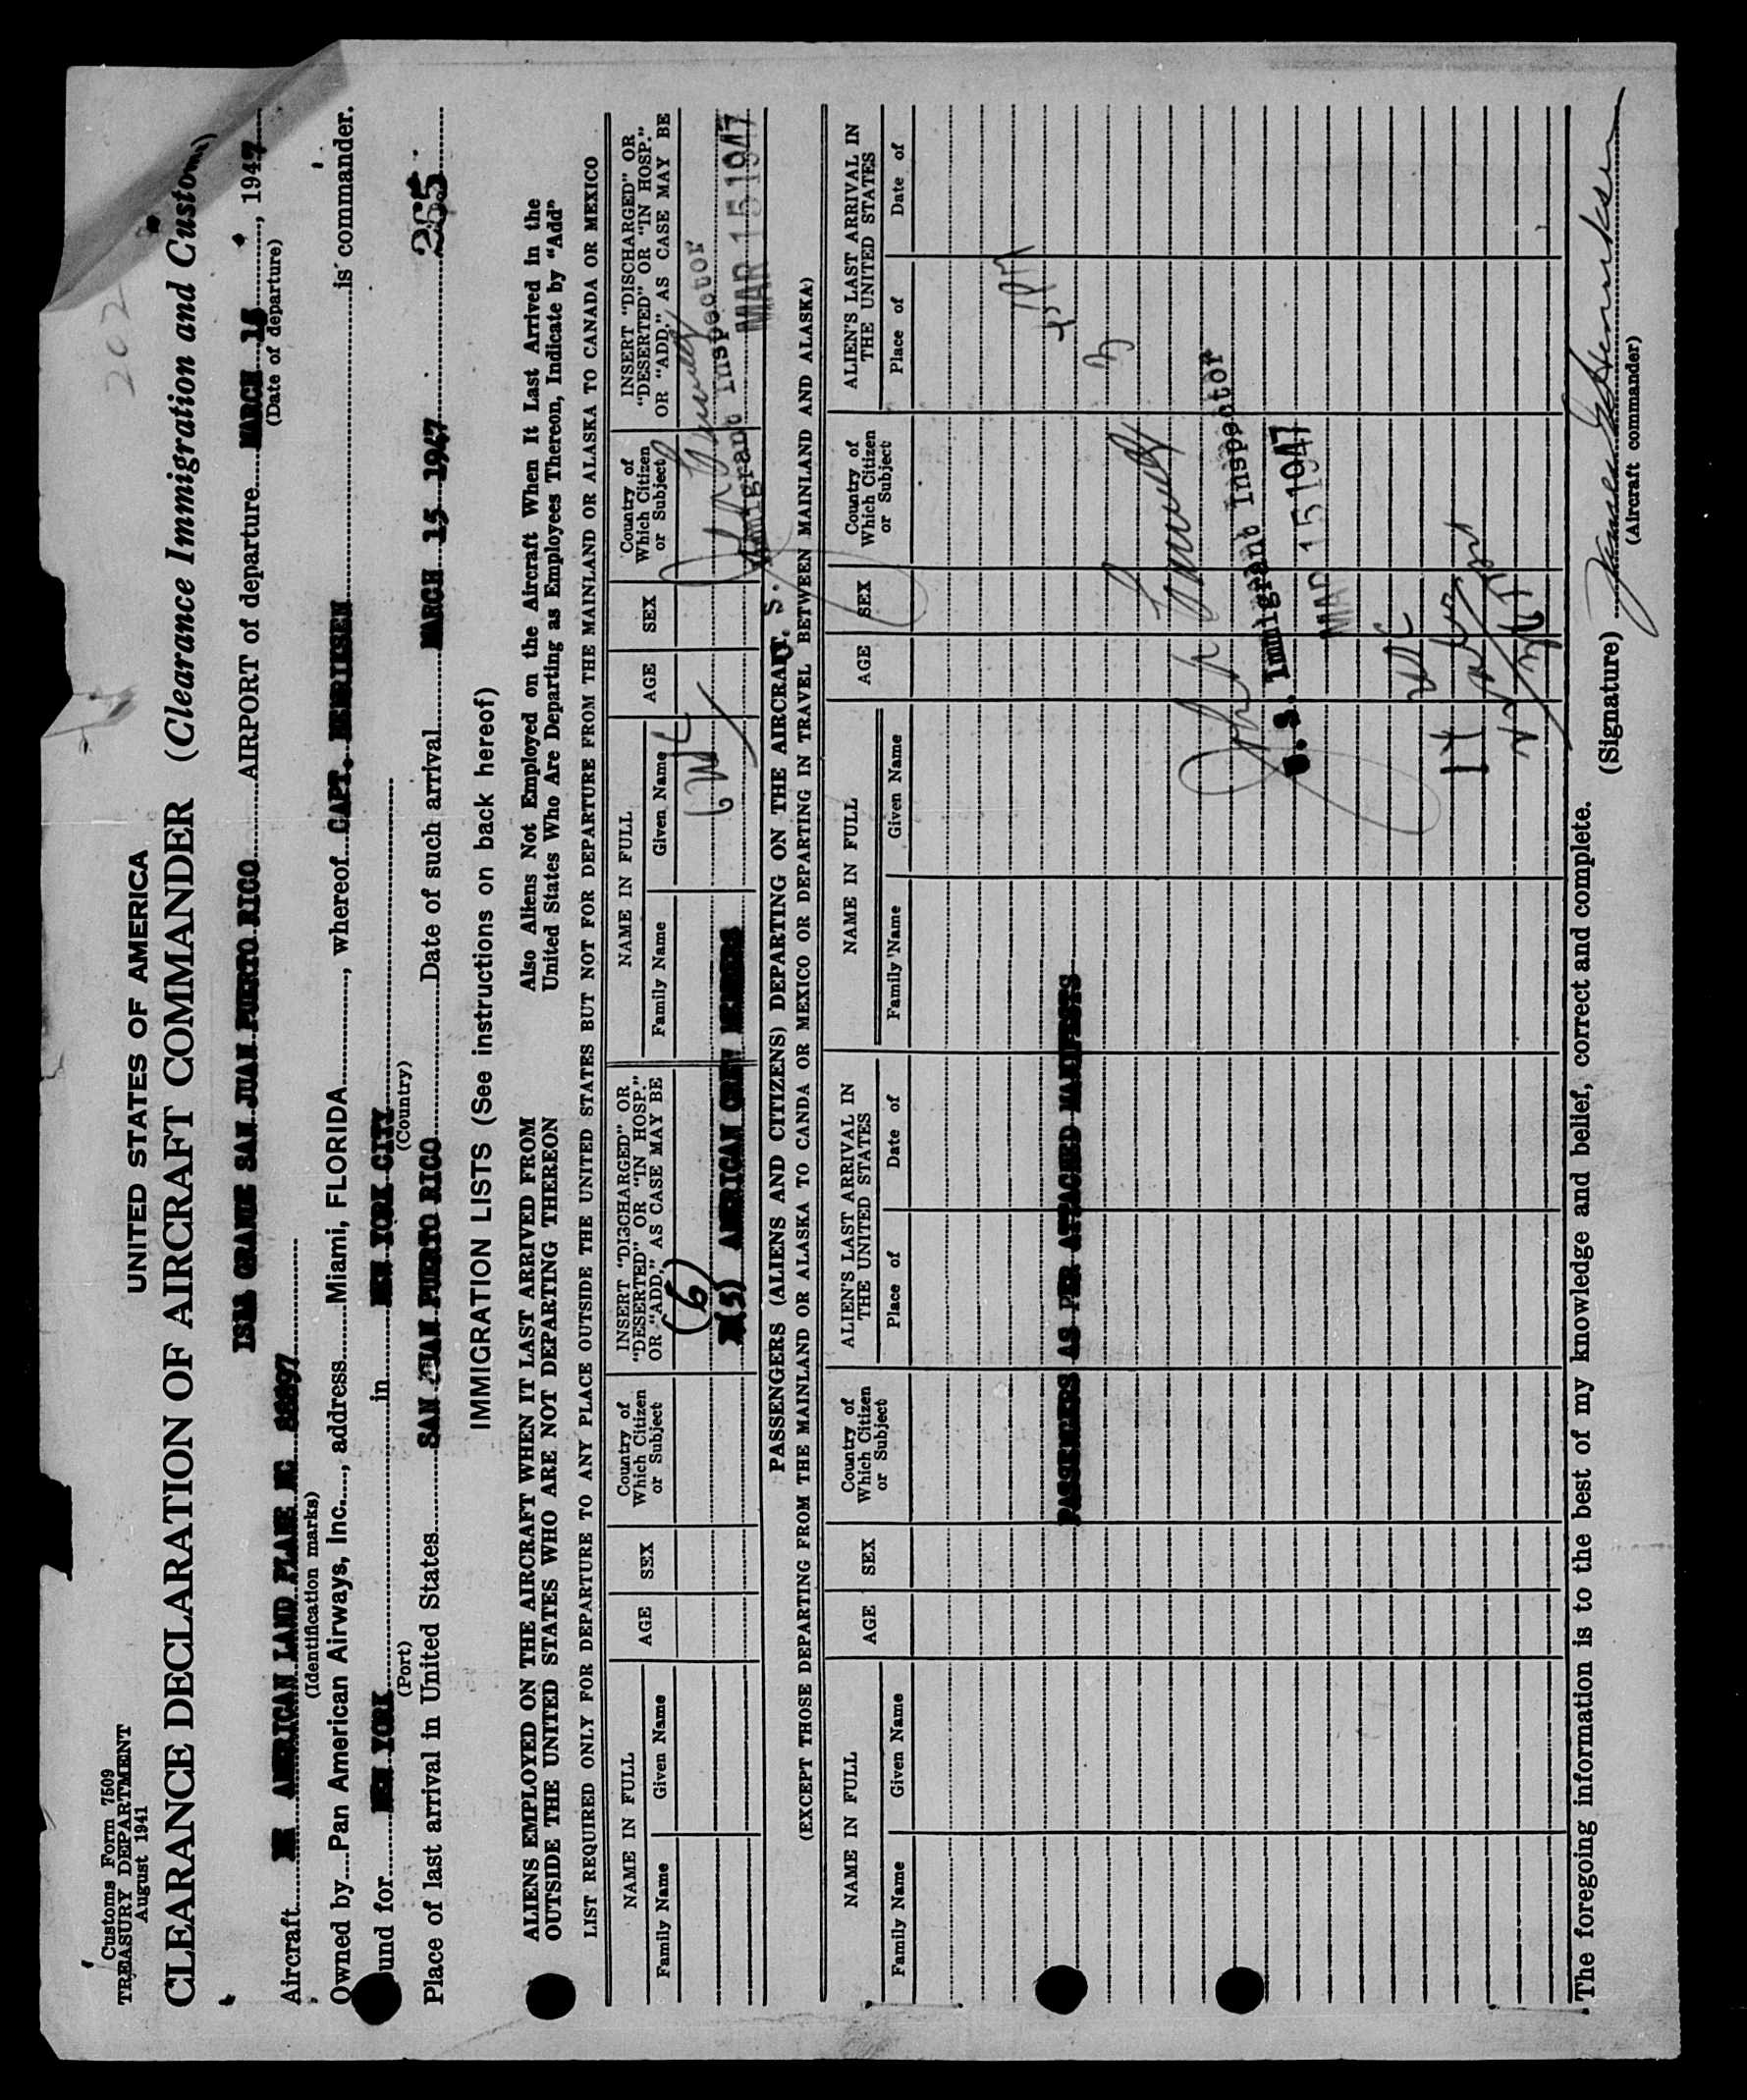 202
Customs Form 7509
TREASURY DEPARTMENT
August 1941
UNITED STATES OF AMERICA
CLEARANCE DECLARATION OF AIRCRAFT COMMANDER (Clearance Immigration and Customs)
ISLA GRANDE SAN JUAN PUERTO RICO AIRPORT of departure MARCH 15, 1947
(Date of departure)
Aircraft AMERICAN LAND PLANE NC 88897
(Identification marks)
Owned by Pan American Airways, Inc., address Miami, FLORIDA, whereof CAPT. is commander.
und for NEW YORK in NEW YORK CITY
(Port) (Country)
Place of last arrival in United States SAN JUAN PUERTO RICO Date of such arrival MARCH 15 1947 265
IMMIGRATION LISTS (See instructions on back hereof)
ALIENS EMPLOYED ON THE AIRCRAFT WHEN IT LAST ARRIVED FROM
OUTSIDE THE UNITED STATES WHO ARE NOT DEPARTING THEREON
Also Aliens Not Employed on the Aircraft When It Last Arrived in the
United States Who Are Departing as Employees Thereon, Indicate by "Add"
LIST REQUIRED ONLY FOR DEPARTURE TO ANY PLACE OUTSIDE THE UNITED STATES BUT NOT FOR DEPARTURE FROM THE MAINLAND OR ALASKA TO CANADA OR MEXICO
NAME IN FULL
Family Name Given Name
AGE
SEX
Country of
Which Citizen
or Subject
INSERT "DISCHARGED" OR
"DESERTED" OR "IN HOSP."
OR "ADD," AS CASE MAY BE
NAME IN FULL
Family Name Given Name
AGE
SEX
Country of
Which Citizen
or Subject
INSERT "DISCHARGED" OR
"DESERTED" OR "IN HOSP."
OR "ADD," AS CASE MAY BE
(6)
(5) AMERICAN CREW MEMBERS
U. S. Immigrant Inspector
MAR 15 1947
PASSENGERS (ALIENS AND CITIZENS) DEPARTING ON THE AIRCRAFT
(EXCEPT THOSE DEPARTING FROM THE MAINLAND OR ALASKA TO CANDA OR MEXICO OR DEPARTING IN TRAVEL BETWEEN MAINLAND AND ALASKA)
NAME IN FULL
Family Name Given Name
AGE
SEX
Country of
Which Citizen
or Subject
ALIEN'S LAST ARRIVAL IN
THE UNITED STATES
Place of Date of
NAME IN FULL
Family Name Given Name
AGE
SEX
Country of
Which Citizen
or Subject
ALIEN'S LAST ARRIVAL IN
THE UNITED STATES
Place of Date of
PASSENGERS AS PER ATTACHED MANIFESTS
U. S. Immigrant Inspector
MAR 15 1947
The foregoing information is to the best of my knowledge and belief, correct and complete.
(Signature)
(Aircraft commander)